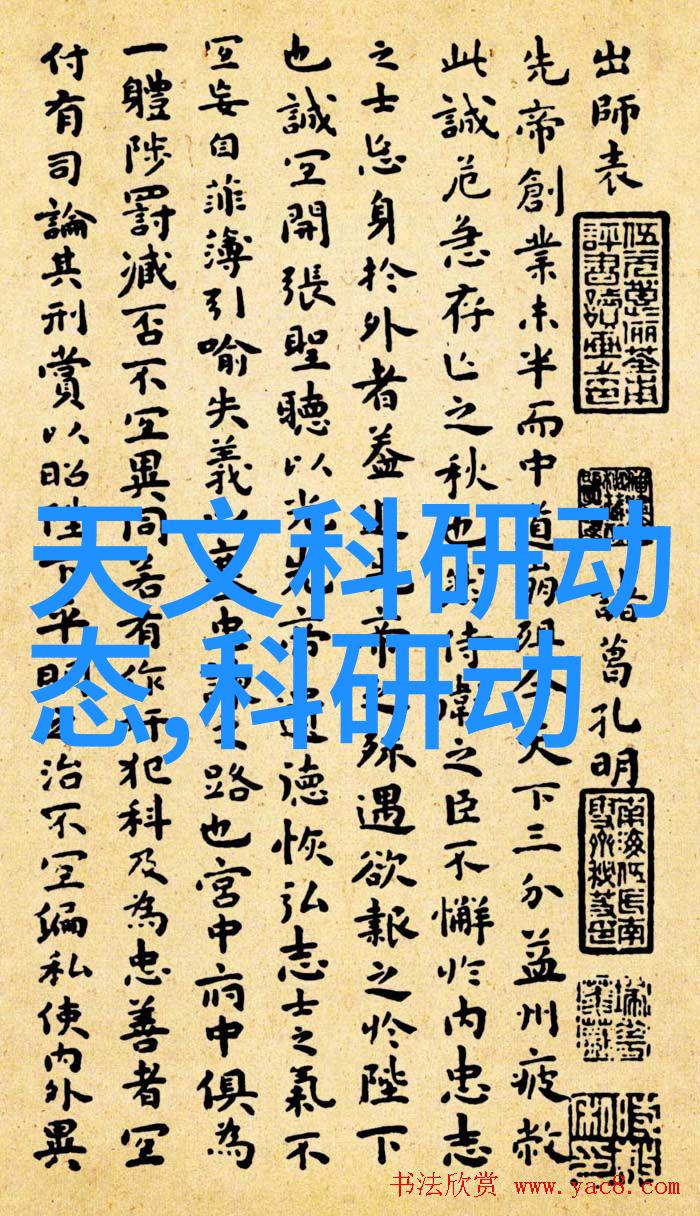 出師表
諸葛孔明
先帝創業未半而中道崩殂今天下三分益州疲敝
此誠危急存亡之秋也然侍衛之臣不懈於内忠志
之士忘身於外者蓋追先帝之殊遇欲報之於陛下
也誠宜開張聖聽以光先帝遺德恢弘志士之氣不
宜妄自菲薄引喻失義以塞忠諫之路也宮中府中俱為
一體陟罰臧否不宜異同若有作奸犯科及為忠善者宜
付有司論其刑賞以昭陛下平明之治不宜偏私使内外異
天文科研动
态,科研动
书法欣赏 www.yac8.com